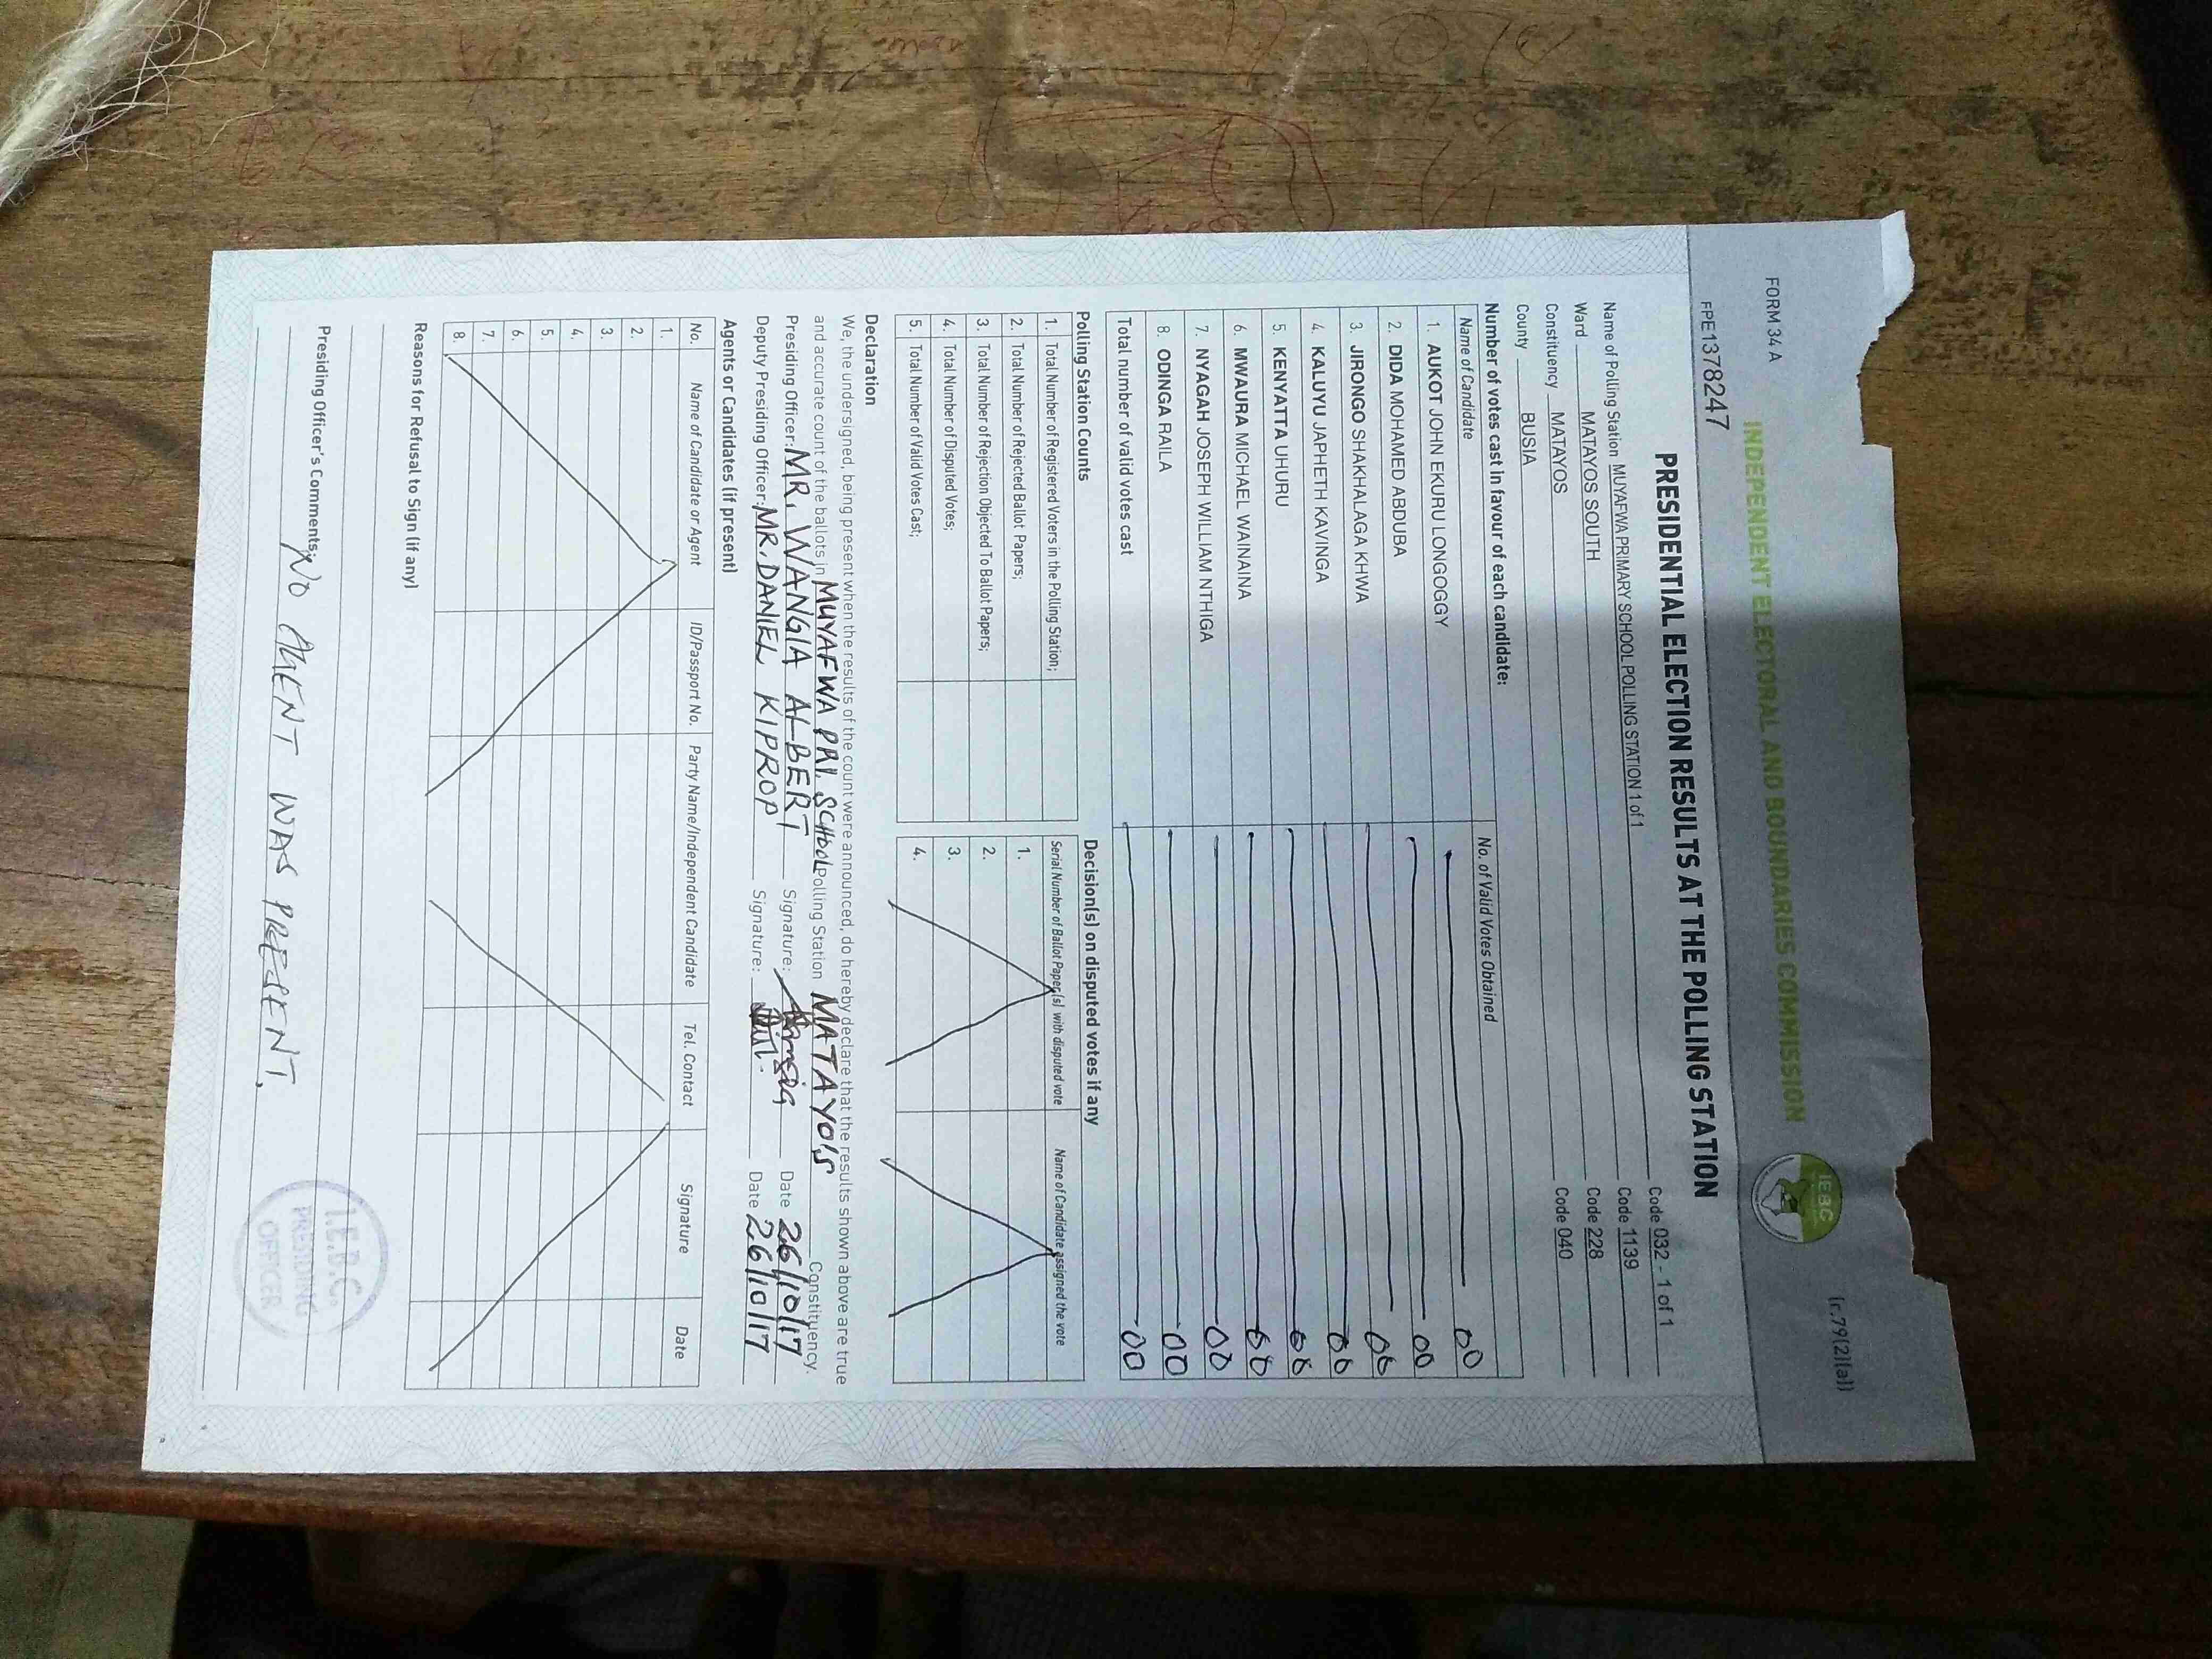 FORM 34 A
(r.79(2)(a))
INDEPENDENT ELECTORAL AND BOUNDARIES COMMISSION
IEBC
FPE1378247
PRESIDENTIAL ELECTION RESULTS AT THE POLLING STATION
Name of Polling Station MUYAFWA PRIMARY SCHOOL POLLING STATION 1 of 1 Code 032 - 1 of 1
Ward MATAYOS SOUTH Code 1139
Constituency MATAYOS Code 228
County BUSIA Code 040
Number of votes cast in favour of each candidate:
Name of Candidate No. of Valid Votes Obtained
1. AUKOT JOHN EKURU LONGOGGY 00
2. DIDA MOHAMED ABDUBA 00
3. JIRONGO SHAKHALAGA KHWA 00
4. KALUYU JAPHETH KAVINGA 00
5. KENYATTA UHURU 00
6. MWAURA MICHAEL WAINAINA 00
7. NYAGAH JOSEPH WILLIAM NTHIGA 00
8. ODINGA RAILA 00
Total number of valid votes cast 00
Polling Station Counts
1. Total Number of Registered Voters in the Polling Station;
2. Total Number of Rejected Ballot Papers;
3 Total Number of Rejection Objected To Ballot Papers;
4. Total Number of Disputed Votes;
5. Total Number of Valid Votes Cast;
Decision(s) on disputed votes if any
Serial Number of Ballot Paper(s) with disputed vote Name of Candidate assigned the vote
1.
2.
3.
4.
Declaration
We, the undersigned, being present when the results of the count were announced, do hereby declare that the results shown above are true
and accurate count of the ballots in MUYAFWA PRI. SCHOOL Polling Station MATAYOS Constituency.
Presiding Officer: MR. WANGIA ALBERT Signature: Date 26/10/17
Deputy Presiding Officer: MR. DANIEL KIPROP Signature: Date 26/10/17
Agents or Candidates (if present)
No. Name of Candidate or Agent ID/Passport No. Party Name/Independent Candidate Tel. Contact Signature Date
1.
2.
3.
4.
5.
6.
7.
8.
Reasons for Refusal to Sign (if any)
Presiding Officer's Comments; NO AGENT WAS PRESENT.
I.E.B.C.
PRESIDING
OFFICER